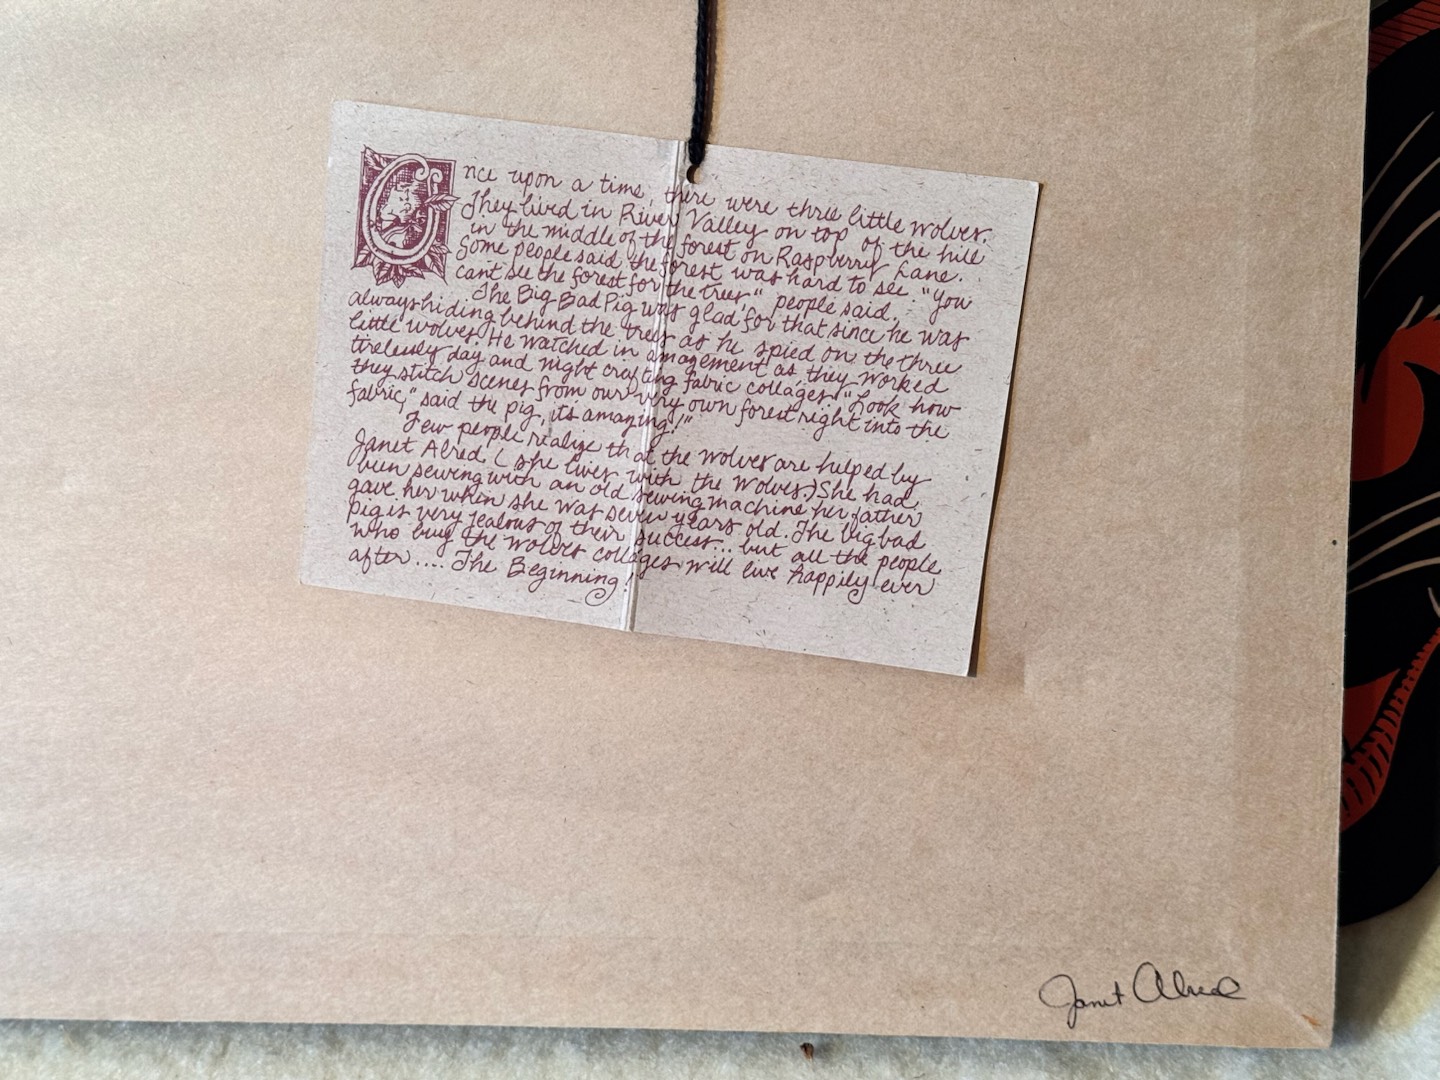 Once upon a time, there were three little wolves.
They lived in River Valley on top of the hill
in the middle of the forest on Raspberry Lane.
Some people said the forest was hard to see. "You
cant see the forest for the trees," people said.
The Big Bad Pig was glad for that since he was
always hiding behind the trees as he spied on the three
little wolves. He watched in amazement as they worked
tirelessly day and night crafting fabric collages. "Look how
they stitch scenes from our very own forest right into the
fabric," said the pig, "its amazing!"
Few people realize that the wolves are helped by
Janet Alred. (She lives with the wolves.) She had
been sewing with an old sewing machine her father
gave her when she was seven years old. The big bad
pig is very jealous of their success... but all the people
who buy the wolves collages will live happily ever
after.... The Beginning!
Janet Alred